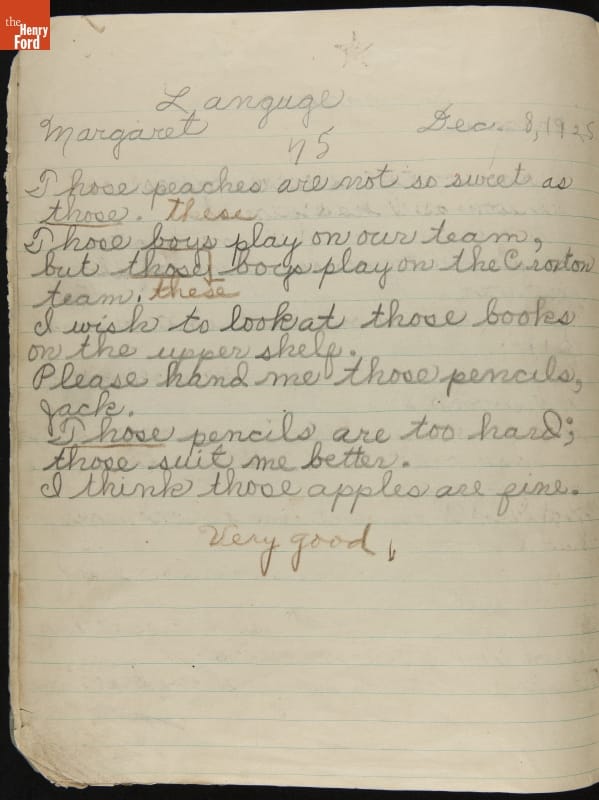 the
Henry
Ford
Languge
Margaret Dec. 8, 1925
75
Those peaches are not so sweet as
those. these
Those boys play on our team,
but those boys play on the Croxton
team. these
I wish to look at those books
on the upper shelf.
Please hand me those pencils,
Jack.
Those pencils are too hard;
those suit me better.
I think those apples are fine.
Very good